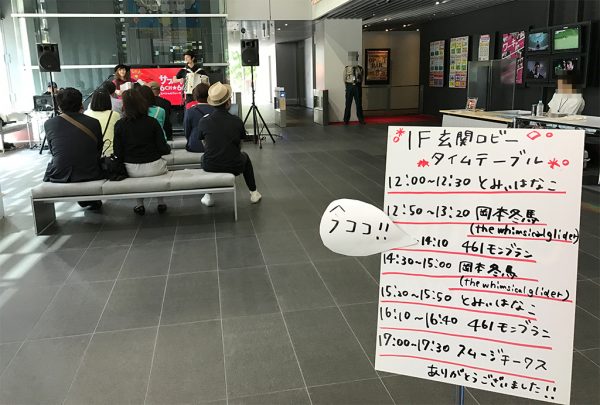 1F 玄関ロビー
タイムテーブル
12:00~12:30 とみいはなこ
12:50~13:20 岡本冬馬
(the whimsical glider)
今ココ!!
14:10 461モンブラン
14:30~15:00 岡本冬馬
(the whimsical glider)
15:20~15:50 とみいはなこ
16:10~16:40 461モンブラン
17:00~17:30 スムージチークス
ありがとうございました!!